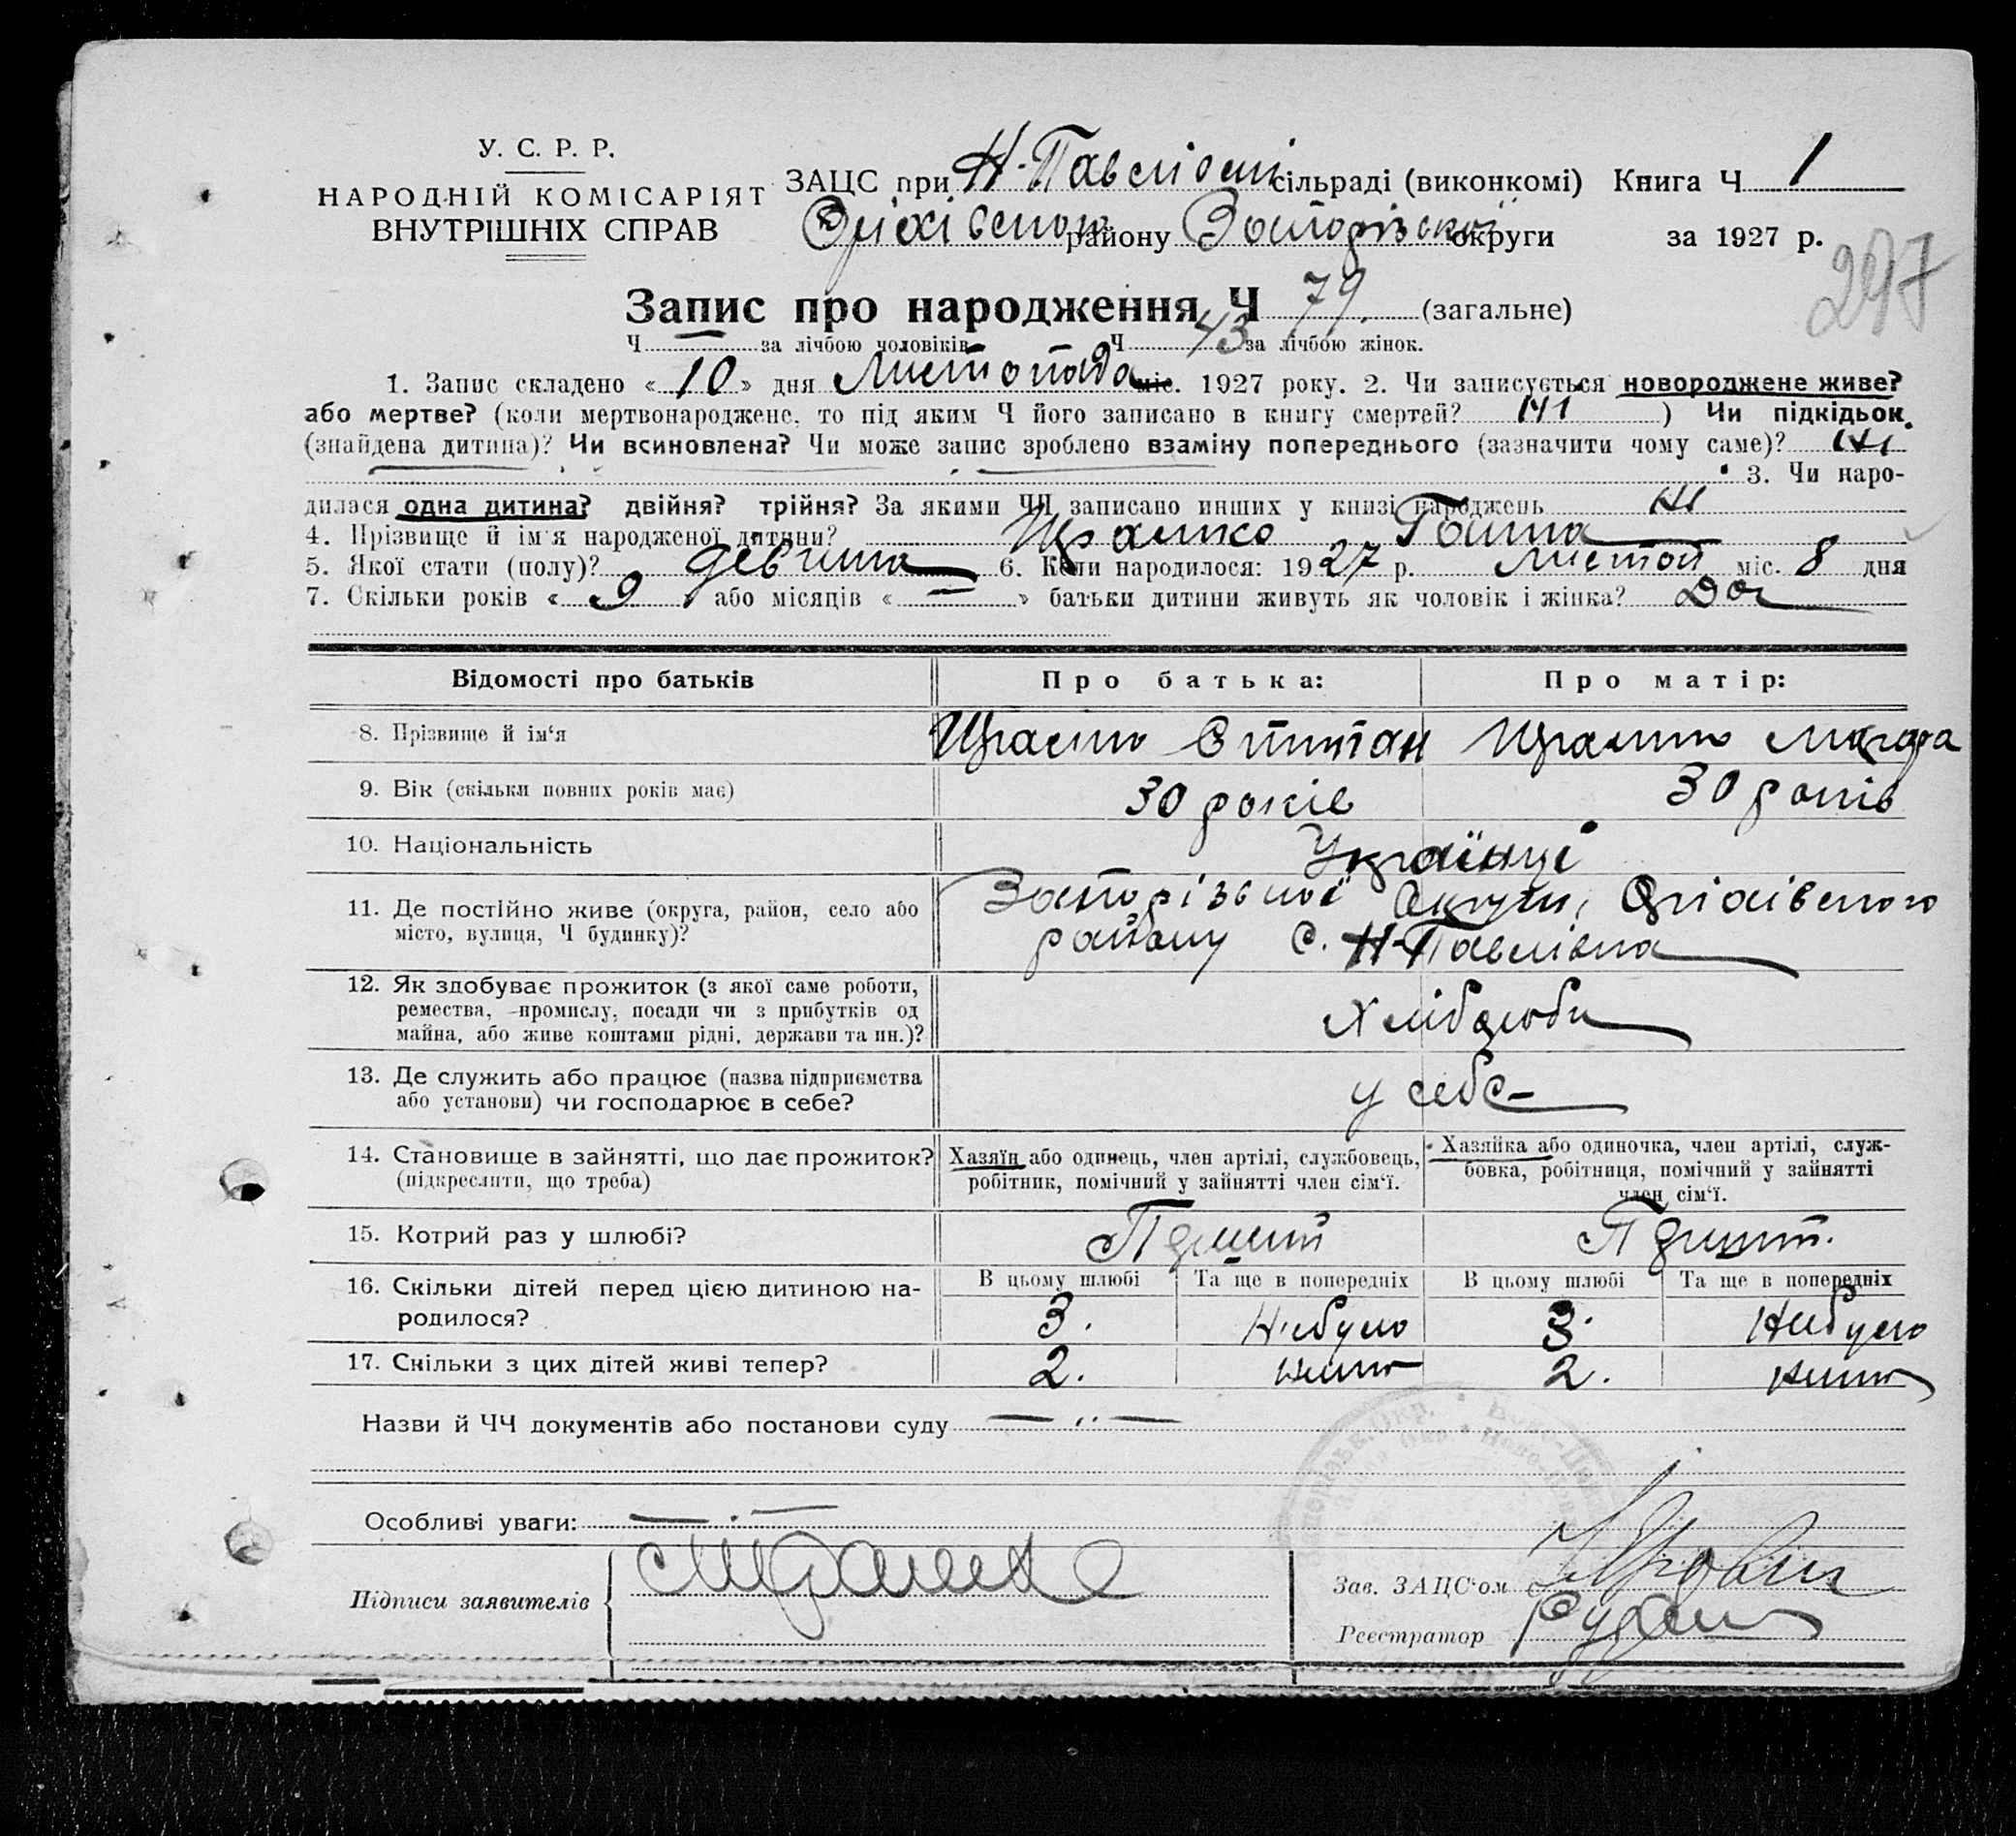 У. С. Р. Р.
НАРОДНІЙ КОМІСАРІЯТ
ВНУТРІШНІХ СПРАВ
ЗАЦС при Н-Павлівській сільраді (виконкомі) Книга Ч 1
Оріхівського району Запорізської округи за 1927 р.
297
Запис про народження Ч 79. (загальне)
Ч — за лічбою чоловіків Ч 43 за лічбою жінок.
1. Запис складено « 10 » дня Листопада міс. 1927 року. 2. Чи записується новороджене живе?
або мертве? (коли мертвонароджене, то під яким Ч його записано в книгу смертей? ні ) Чи підкідьок
(знайдена дитина)? Чи всиновлена? Чи може запис зроблено взаміну попереднього (зазначити чому саме)? ні
3. Чи наро-
дилася одна дитина? двійня? трійня? За якими ЧЧ записано инших у книзі народжень ні
4. Прізвище й ім'я народженої дитини?
5. Якої стати (полу)? дівчина 6. Коли народилося: 1927 р. листоп міс. 8 дня
7. Скільки років « 9 » або місяців « — » батьки дитини живуть як чоловік і жінка?
Відомості про батьків Про батька: Про матір:
8. Прізвище й ім'я
9. Вік (скільки повних років має) 30 років 30 років
10. Національність Українці
11. Де постійно живе (округа, район, село або Запорізької Округи, Оріхівського
місто, вулиця, Ч будинку)? району с. Н-Павлівка
12. Як здобуває прожиток (з якої саме роботи,
ремества, промислу, посади чи з прибутків од Хлібороби
майна, або живе коштами рідні, держави та ин.)?
13. Де служить або працює (назва підприємства у себе
або установи) чи господарює в себе?
14. Становище в зайнятті, що дає прожиток? Хазяїн або одинець, член артілі, службовець, Хазяйка або одиночка, член артілі, служ-
(підкреслити, що треба) робітник, помічний у зайнятті член сім'ї. бовка, робітниця, помічний у зайнятті
член сім'ї.
15. Котрий раз у шлюбі?
В цьому шлюбі Та ще в попередніх В цьому шлюбі Та ще в попередніх
16. Скільки дітей перед цією дитиною на- 3. Небуло 3. Небуло
родилося?
17. Скільки з цих дітей живі тепер? 2. нема 2. нема
Назви й ЧЧ документів або постанови суду — „ —
Особливі уваги:
Підписи заявителів
Зав. ЗАЦС'ом
Реєстратор